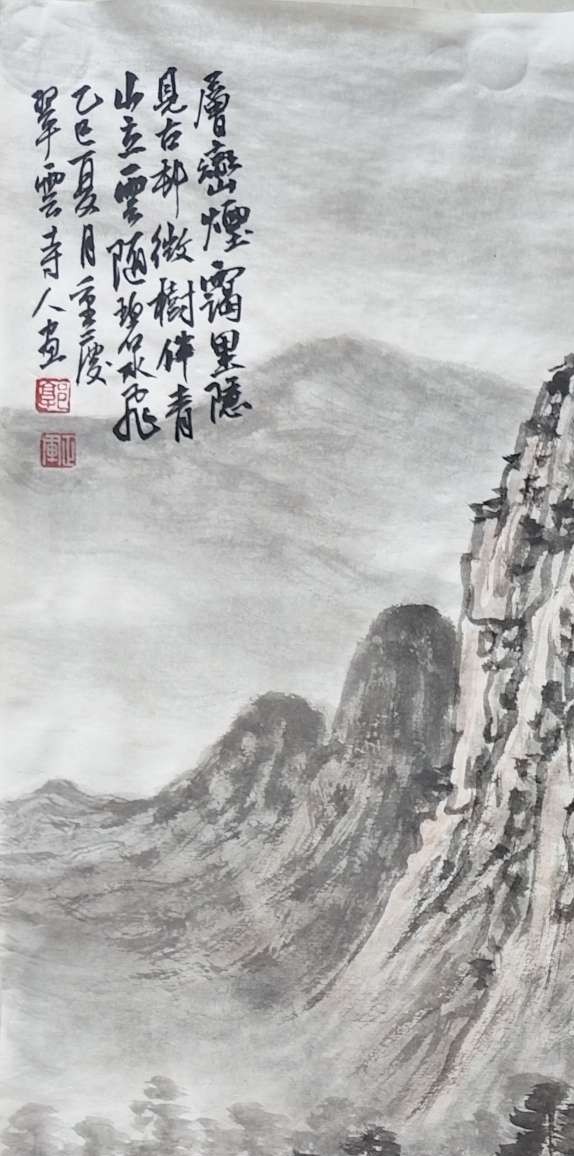 層巒煙靄里隱
見古邨微樹伴青
山立雲隨碧水飛
乙巳夏月重慶
翠雲寺人画
郭